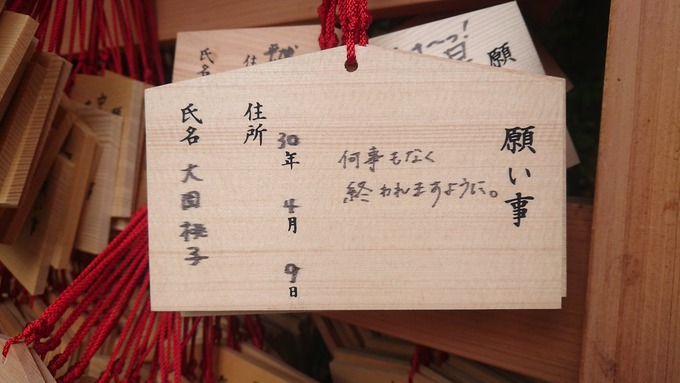 願い事
何事もなく
終われますように。
30年 4月 9日
住所
氏名 大園 桃子
願
氏名
住